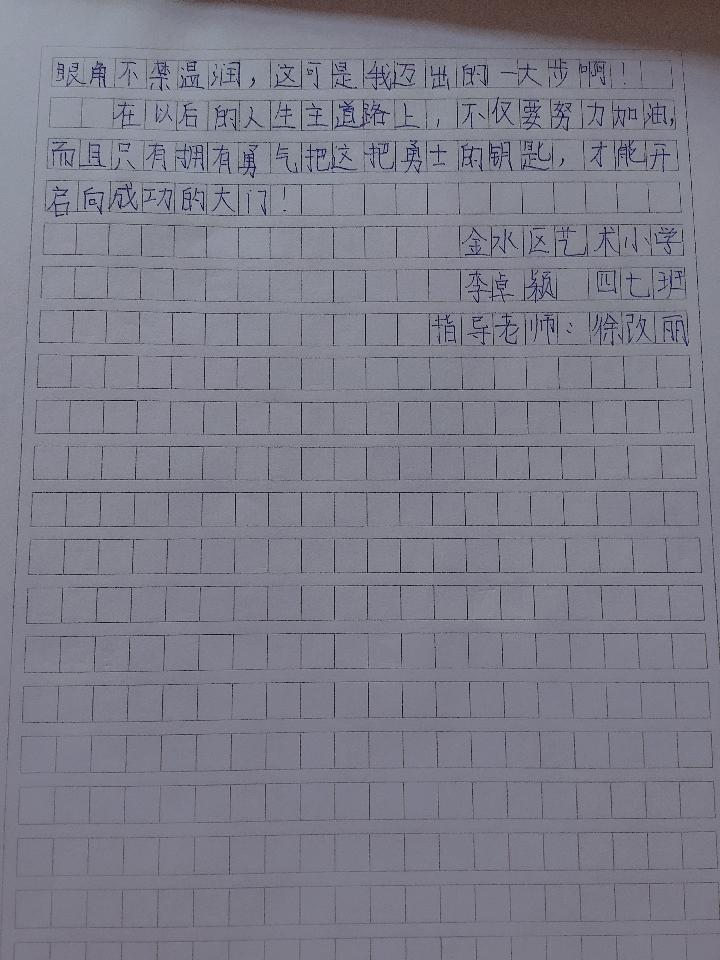 眼角不禁温润，这可是我迈出的一大步啊！
在以后的人生主道路上，不仅要努力加油，
而且只有拥有勇气把这把勇士的钥匙，才能开
启向成功的大门！
金水区艺术小学
李卓颖 四七班
指导老师：徐改丽